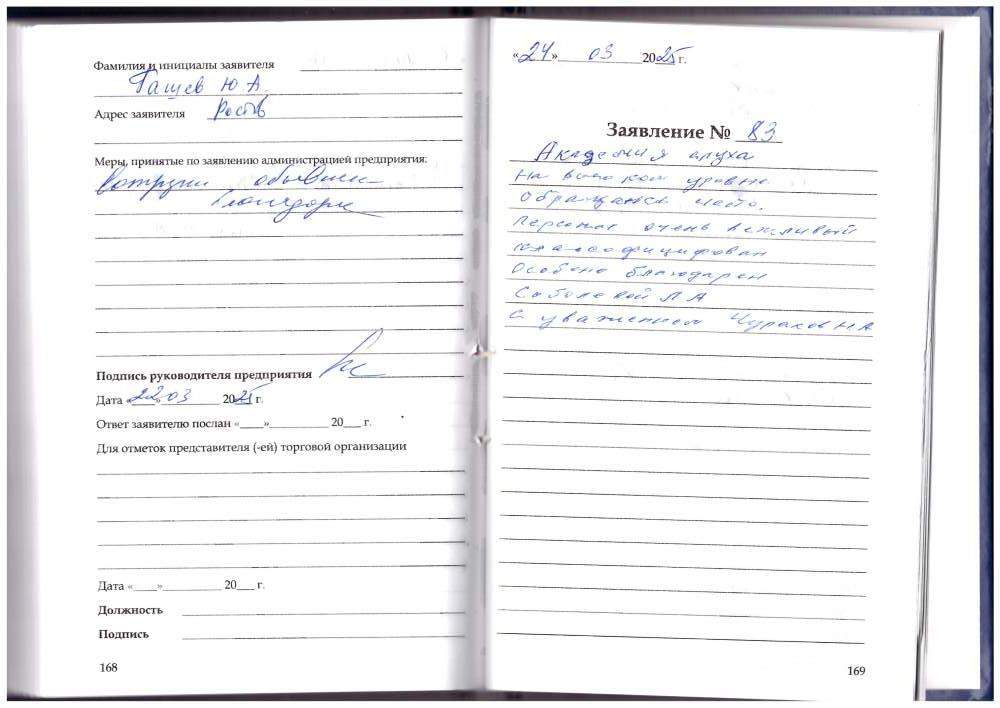 Фамилия и инициалы заявителя
Гащев Ю А.
Адрес заявителя Ростов
Меры, принятые по заявлению администрацией предприятия:
Подпись руководителя предприятия
Дата «22» 03 2025 г.
Ответ заявителю послан «___»__________ 20___ г.
Для отметок представителя (-ей) торговой организации
Дата «___»__________ 20___ г.
Должность
Подпись
168
«24» 03 2025 г.
Заявление № 83
Академия слуха
На высоком уровне
Обращаюсь часто.
Персонал очень вежливый
классофицирован
Особено благодарен
Соболевой Л А
С уважением Чураков Н А
169